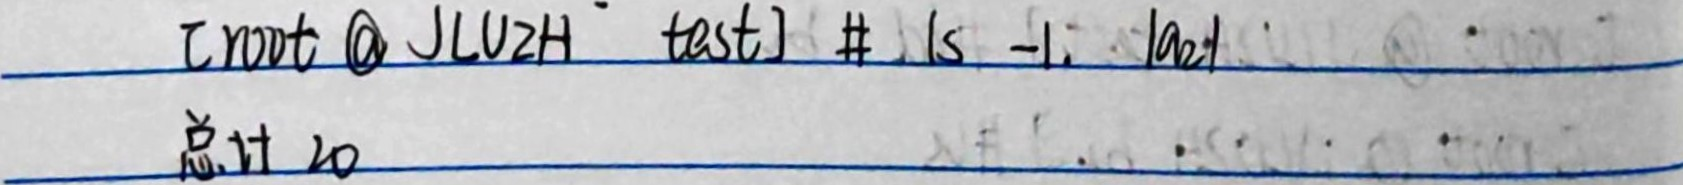 [root @ JLUZH test] # ls -l. /a21
总计 20